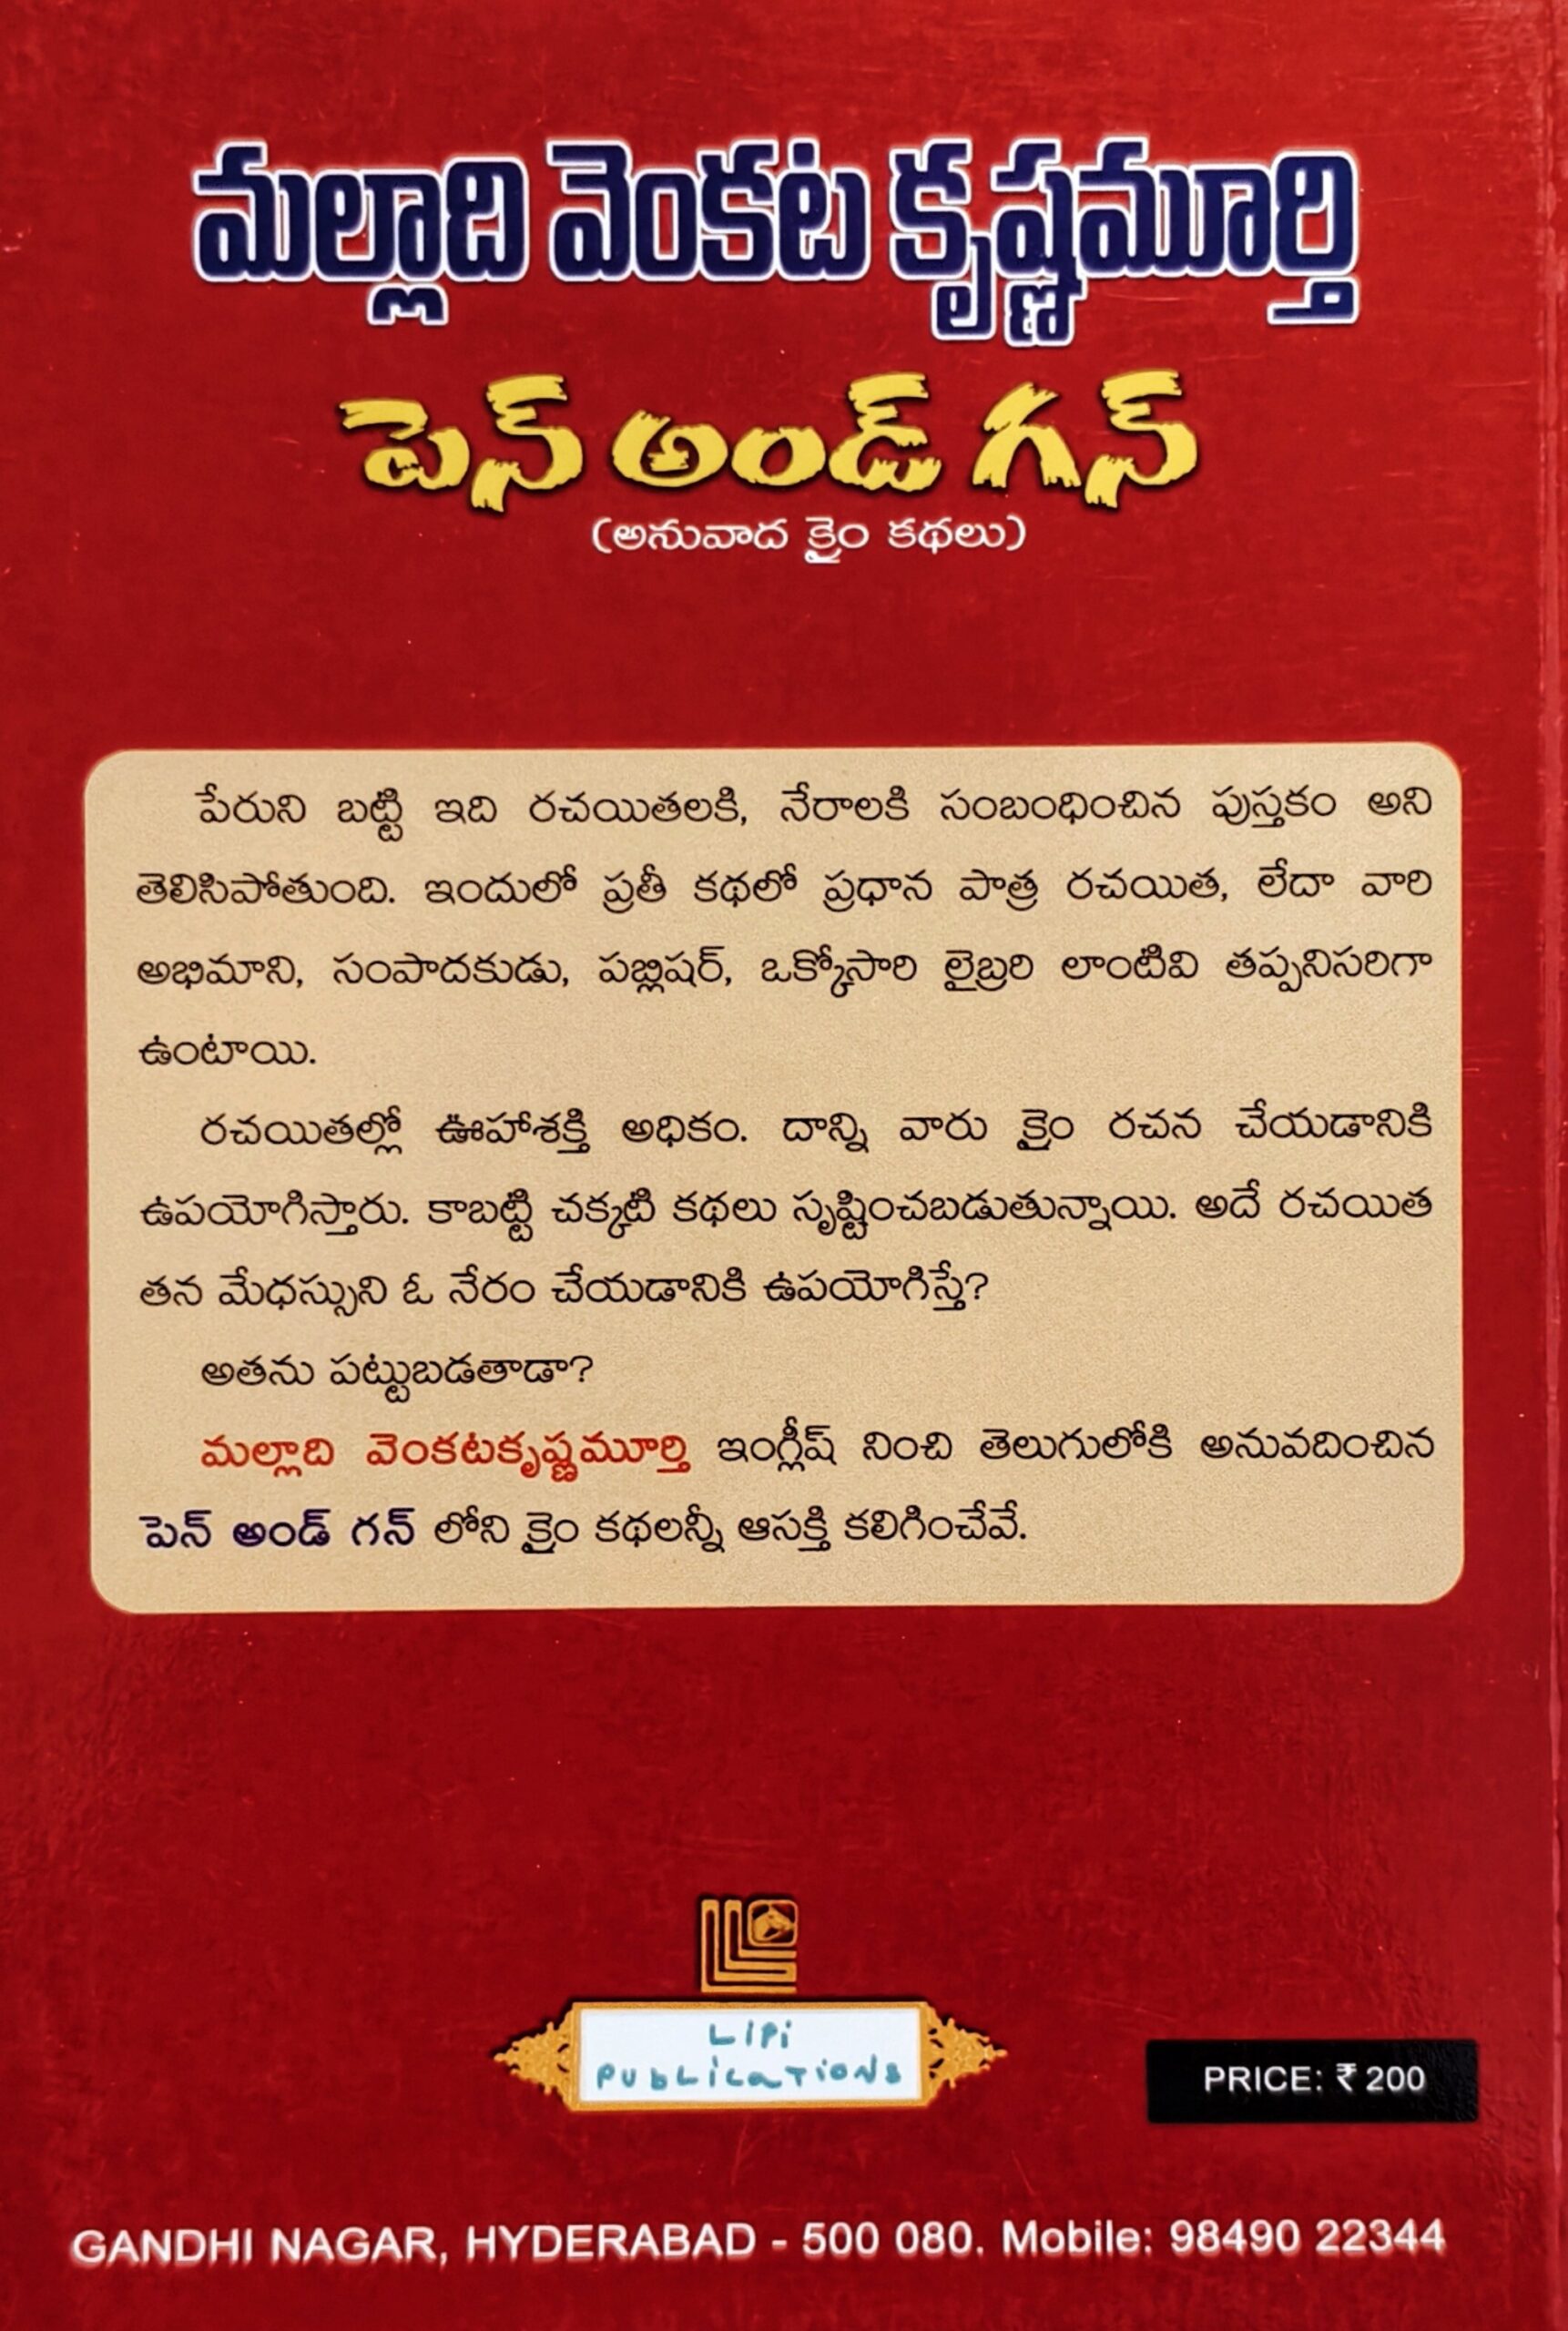 మల్లాది వెంకట కృష్ణమూర్తి
పెన్ అండ్ గన్
(అనువాద క్రైం కథలు)
పేరుని బట్టి ఇది రచయితలకి, నేరాలకి సంబంధించిన పుస్తకం అని
తెలిసిపోతుంది. ఇందులో ప్రతీ కథలో ప్రధాన పాత్ర రచయిత, లేదా వారి
అభిమాని, సంపాదకుడు, పబ్లిషర్, ఒక్కోసారి లైబ్రరి లాంటివి తప్పనిసరిగా
ఉంటాయి.
రచయితల్లో ఊహాశక్తి అధికం. దాన్ని వారు క్రైం రచన చేయడానికి
ఉపయోగిస్తారు. కాబట్టి చక్కటి కథలు సృష్టించబడుతున్నాయి. అదే రచయిత
తన మేధస్సుని ఓ నేరం చేయడానికి ఉపయోగిస్తే?
అతను పట్టుబడతాడా?
మల్లాది వెంకటకృష్ణమూర్తి ఇంగ్లీష్ నించి తెలుగులోకి అనువదించిన
పెన్ అండ్ గన్ లోని క్రైం కథలన్నీ ఆసక్తి కలిగించేవే.
LIPi
PUbLicaTiONs
PRICE: ₹ 200
GANDHI NAGAR, HYDERABAD - 500 080. Mobile: 98490 22344